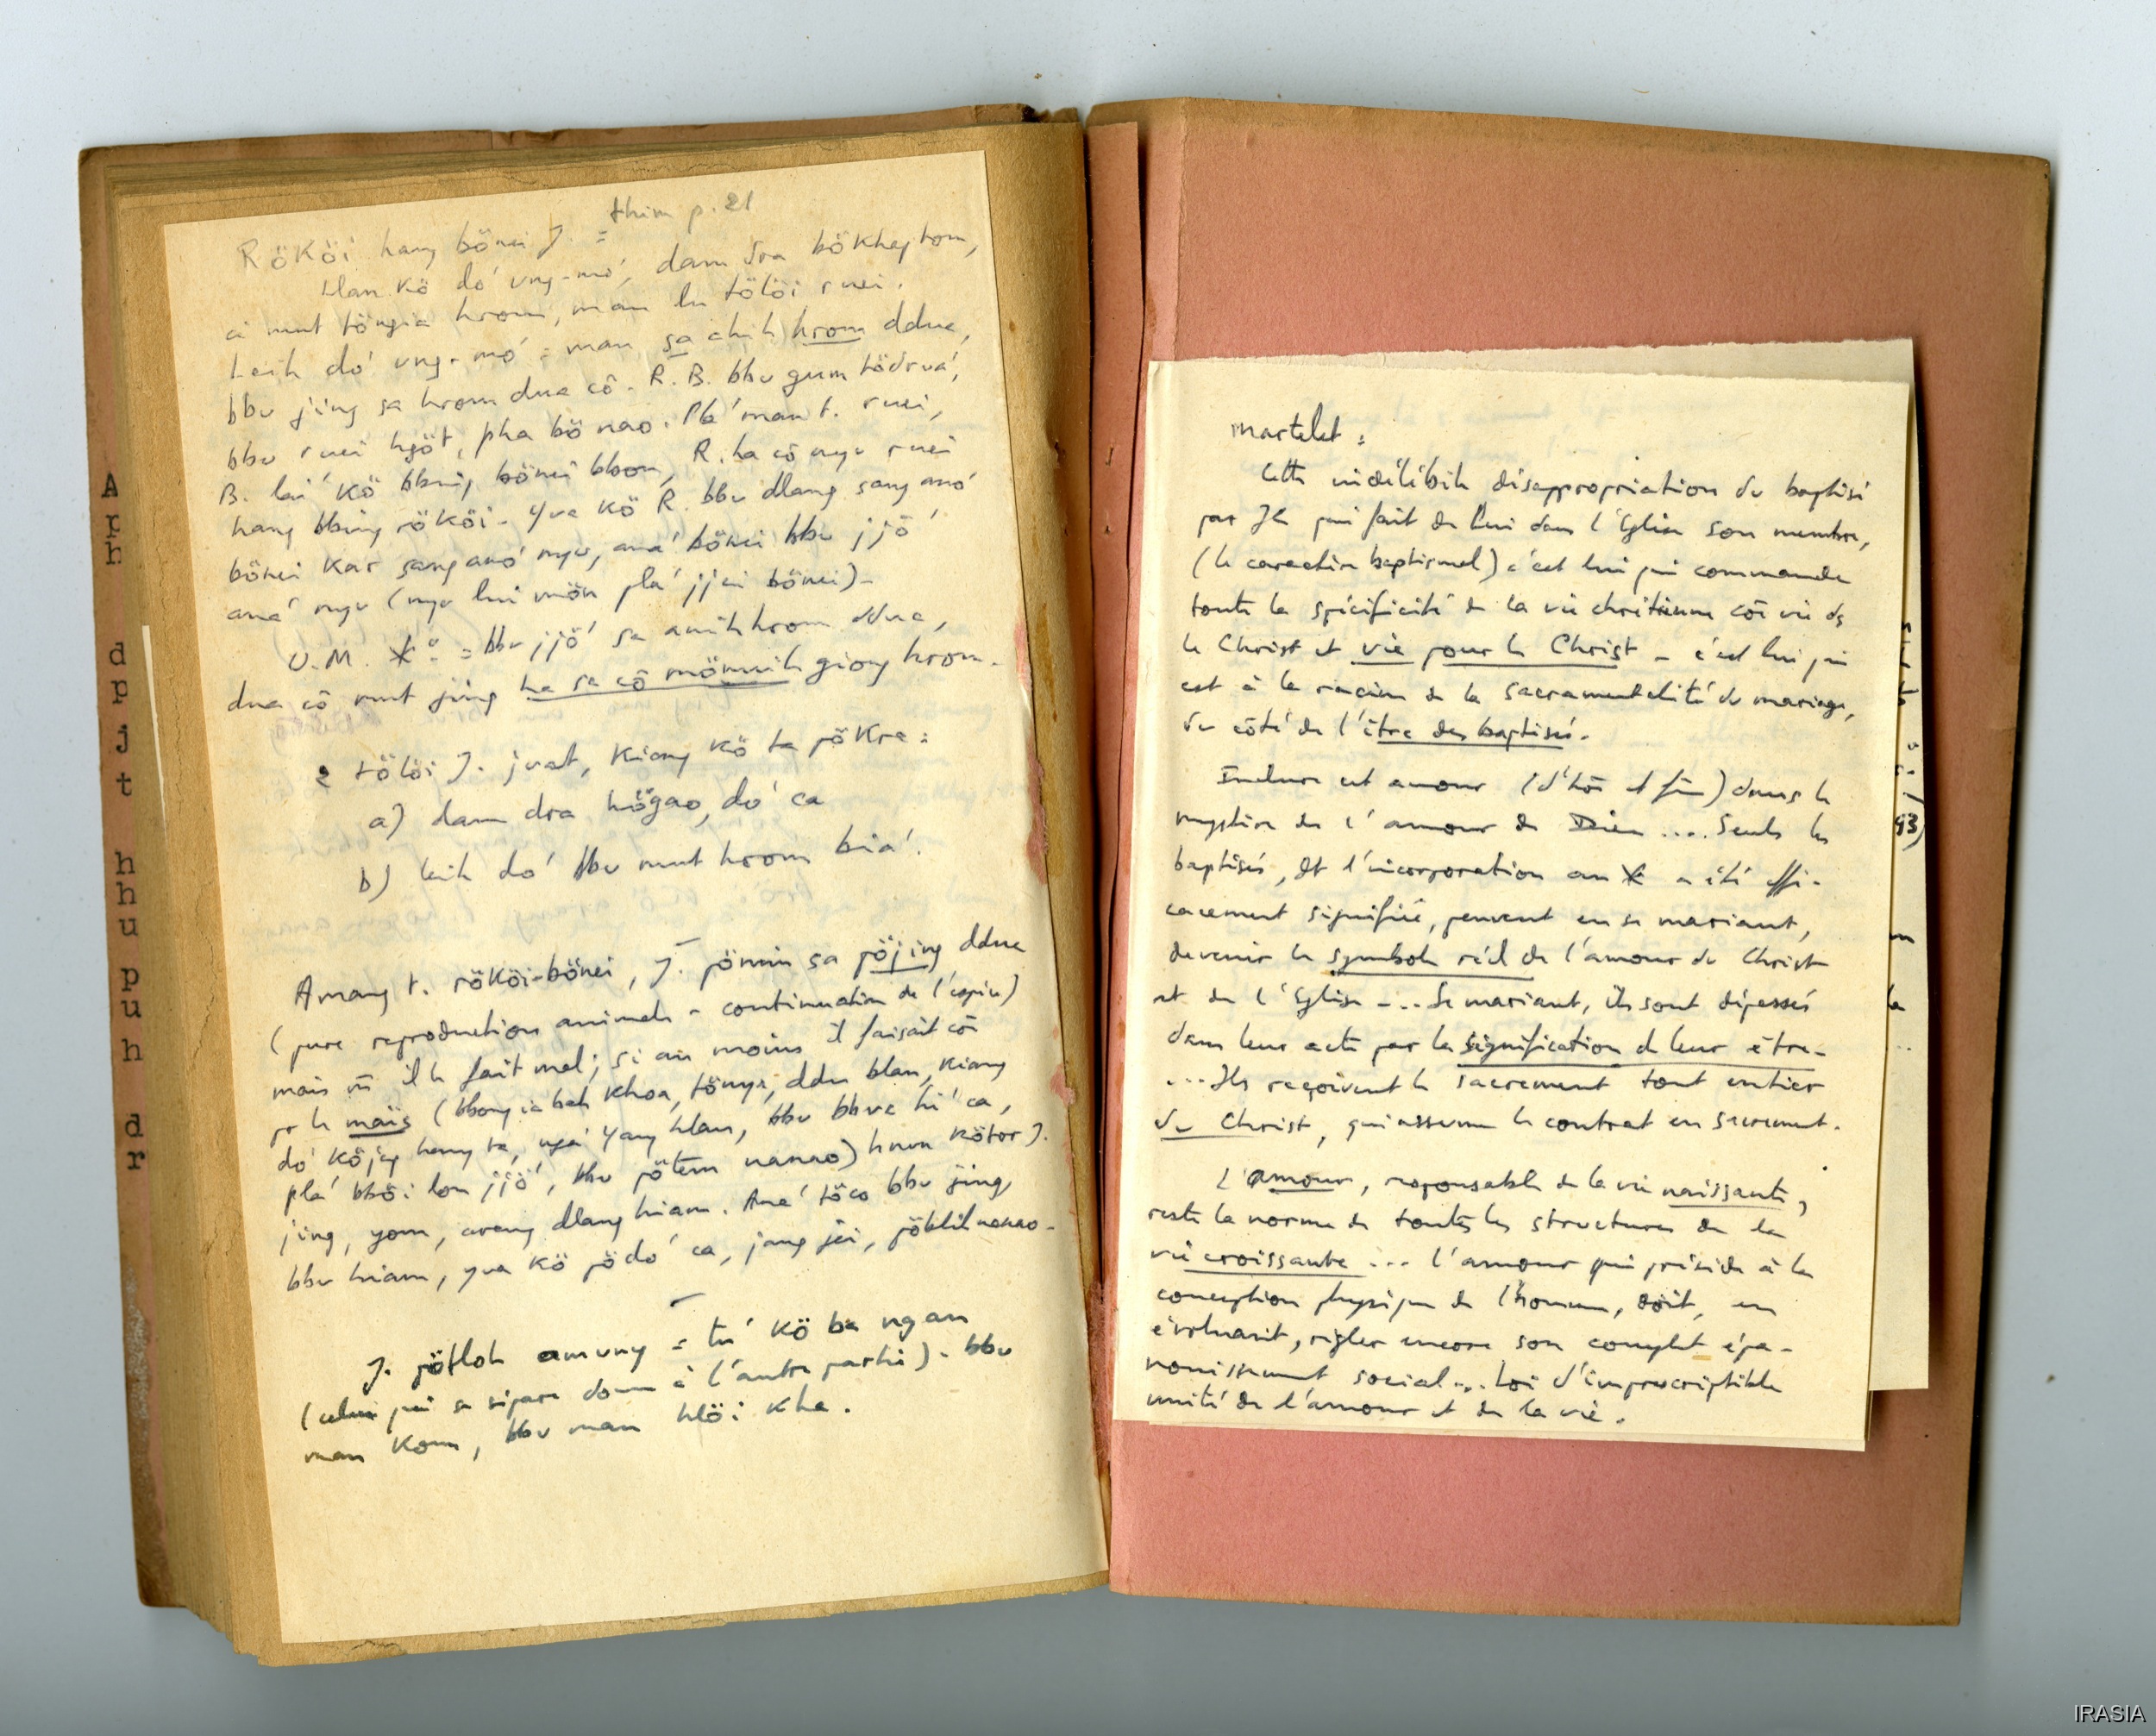 thim p. 21
Rököi hang bönei J. =
Hlan kö dó ung-mó, dam dra bökhej tom,
ci mut töngia hrom, man lu tölöi ruei.
Leih dó ung-mó = man sa anih hrom ddua,
bbu jing sa hrom dua cô. R. B. bbu gum tödruá,
bbu ruei hgöt, pha bö nao. Plá man t. ruei,
B. lui kö bbing bönei bbon, R. ha cô nyu ruei
hang bbing rököi. Yua kö R. bbu dlang sang anó
bönei kar sang anó nyu, aná bönei bbu jjö
aná nyu (nyu lui mön plá jjei bönei)-
U.M. = bbu jjö sa anih hrom ddua,
dua cô mut jing ha sa cô mönuih giong hrom.
2 tölöi J. juat, kiang kö ta pökra =
a) dam dra högao, dó ca
b) leih dó bbu mut hrom biá.
Amang t. rököi-bönei, J. pömin sa pöjing ddua
(pure reproduction animale - continuation de l'espèce)
mais m̄ il le fait mal; si au moins il faisait cō
pr le maïs (bbong ia bah khoa, töngia, ddu blan, kiang
dó köjap hang ta, ngá Yang hlau, bbu bbua hi ca,
plá bböi lon jjö, bbu pötem nanao) hnun kötor J.
jing, yom, arang dlang hiam. Aná töco bbu jing,
bbu hiam, yua kö pödó ca, jang jei, pöblih nanao-
J. pötloh amuny = tú kö ba ngan
(celui qui se sépare donne à l'autre partie). bbu
man kom, bbu man hlöi kha.
Martelet :
Cette indélébile désappropriation du baptisé
par JC qui fait de lui dans l'Eglise son membre,
(le caractère baptismal) c'est lui qui commande
toute la spécificité de la vie chrétienne cō vie ds
le Christ et vie pour le Christ - c'est lui qui
est à la racine de la sacramentalité du mariage,
du côté de l'être des baptisés.
Inclure cet amour (d'hō et fē) dans le
mystère de l'amour de Dieu .... Seuls les
baptisés, dt l'incorporation au X a été effi-
cacement signifiée, peuvent en se mariant,
devenir le symbole réel de l'amour du Christ
et de l'Eglise -... Se mariant, ils sont dépassés
dans leur acte par la signification de leur être-
...Ils reçoivent le sacrement tout entier
du Christ, qui assume le contrat en sacrement.
L'amour, responsable de la vie naissante,
reste la norme de toutes les structures de la
vie croissante ... l'amour qui préside à la
conception physique de l'homme, doit, en
évoluant, régler encore son complet épa-
nouissement social... Loi d'imprescriptible
unité de l'amour et de la vie.
93)
A
p
h
d
p
j
t
h
h
u
p
u
h
d
r
IRASIA